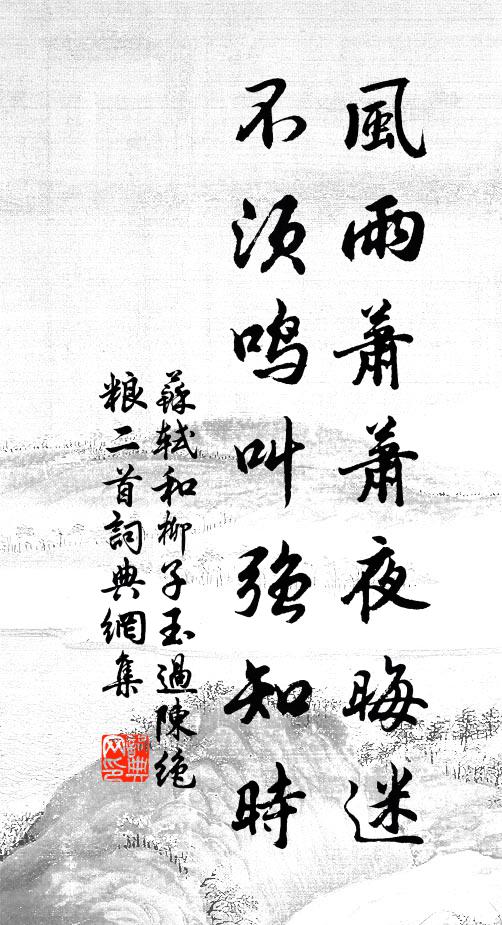 風雨蕭蕭夜晦迷
不須鳴叫強知時
蘇軾和柳子玉過陳絶
粮二首詞典網集
詞典
网印